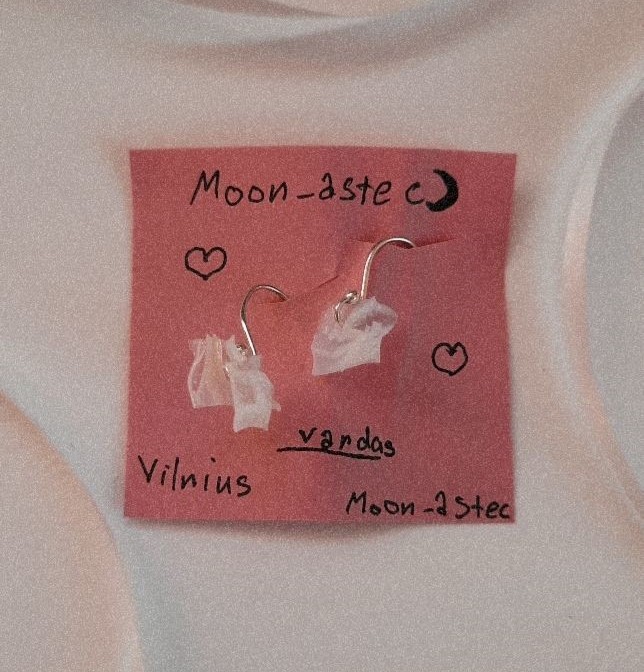 Moon-astec
vardas
Vilnius
Moon-astec